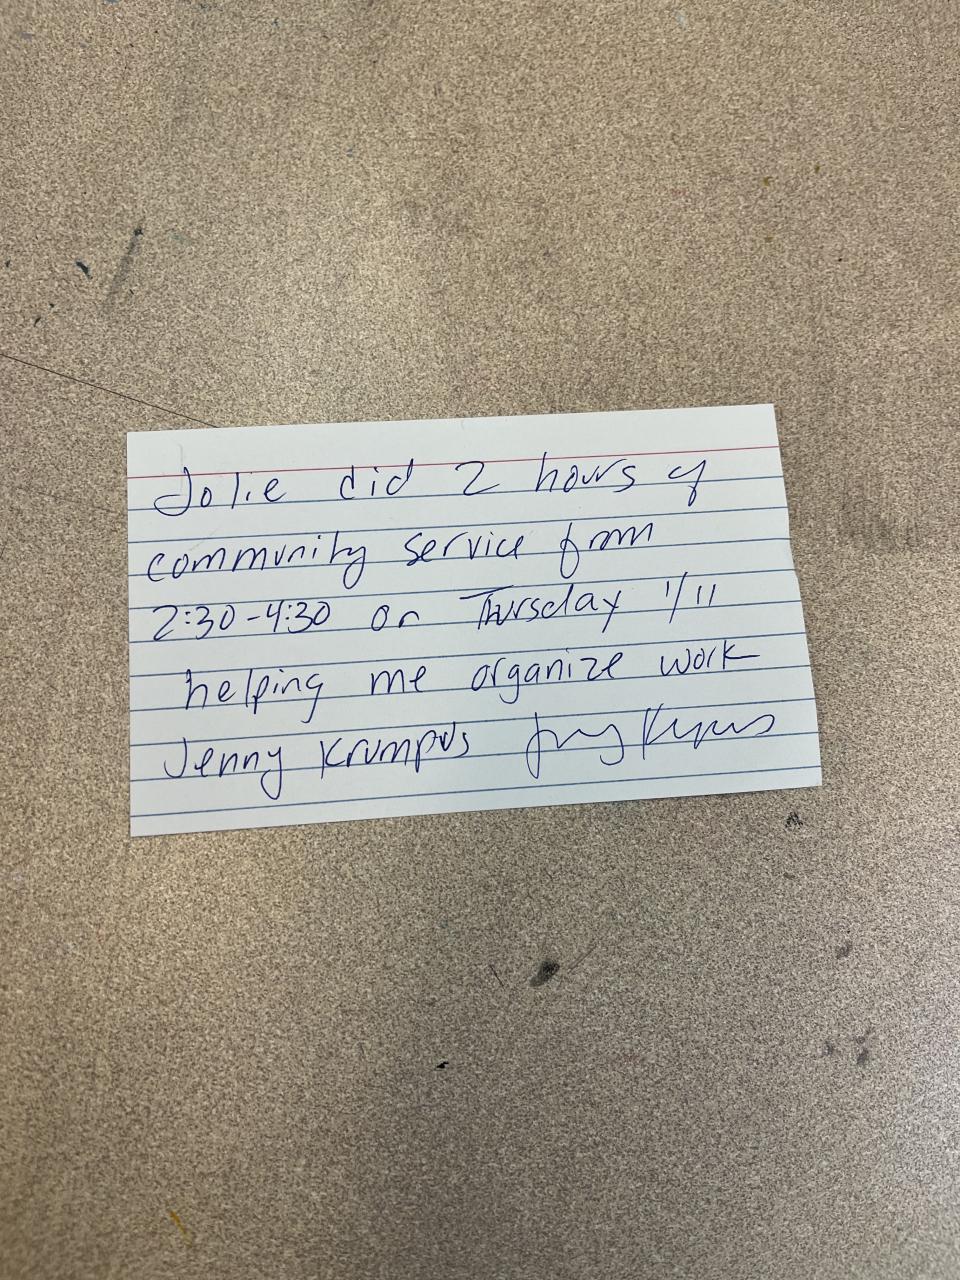 Jolie did 2 hours of
community service from
2:30-4:30 on Thursday 1/11
helping me organize work
Jenny Krumpus